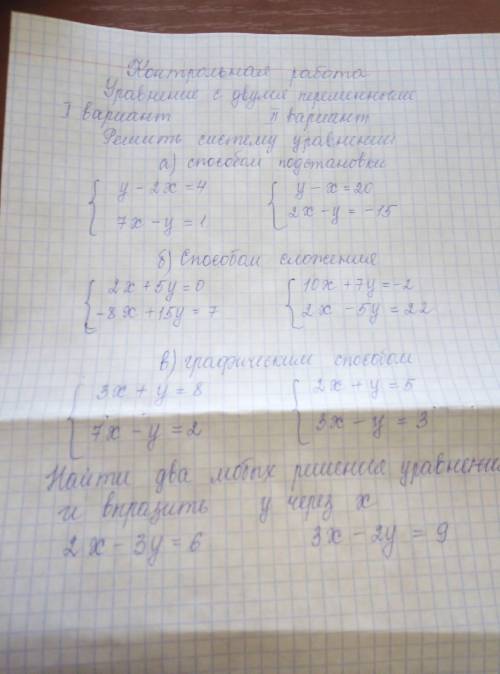 Контрольная работа
Уравнение с двумя переменными
I вариант II вариант
Решить систему уравнений
а) способом подстановки
y - 2x = 4 y - x = 20
7x - y = 1 2x - y = -15
б) Способом сложения
2x + 5y = 0 10x + 7y = -2
-8x + 15y = 7 2x - 5y = 22
в) графическим способом
3x + y = 8 2x + y = 5
7x - y = 2 3x - y = 3
Найти два любых решение уравнения
и впразить y через x
2x - 3y = 6 3x - 2y = 9